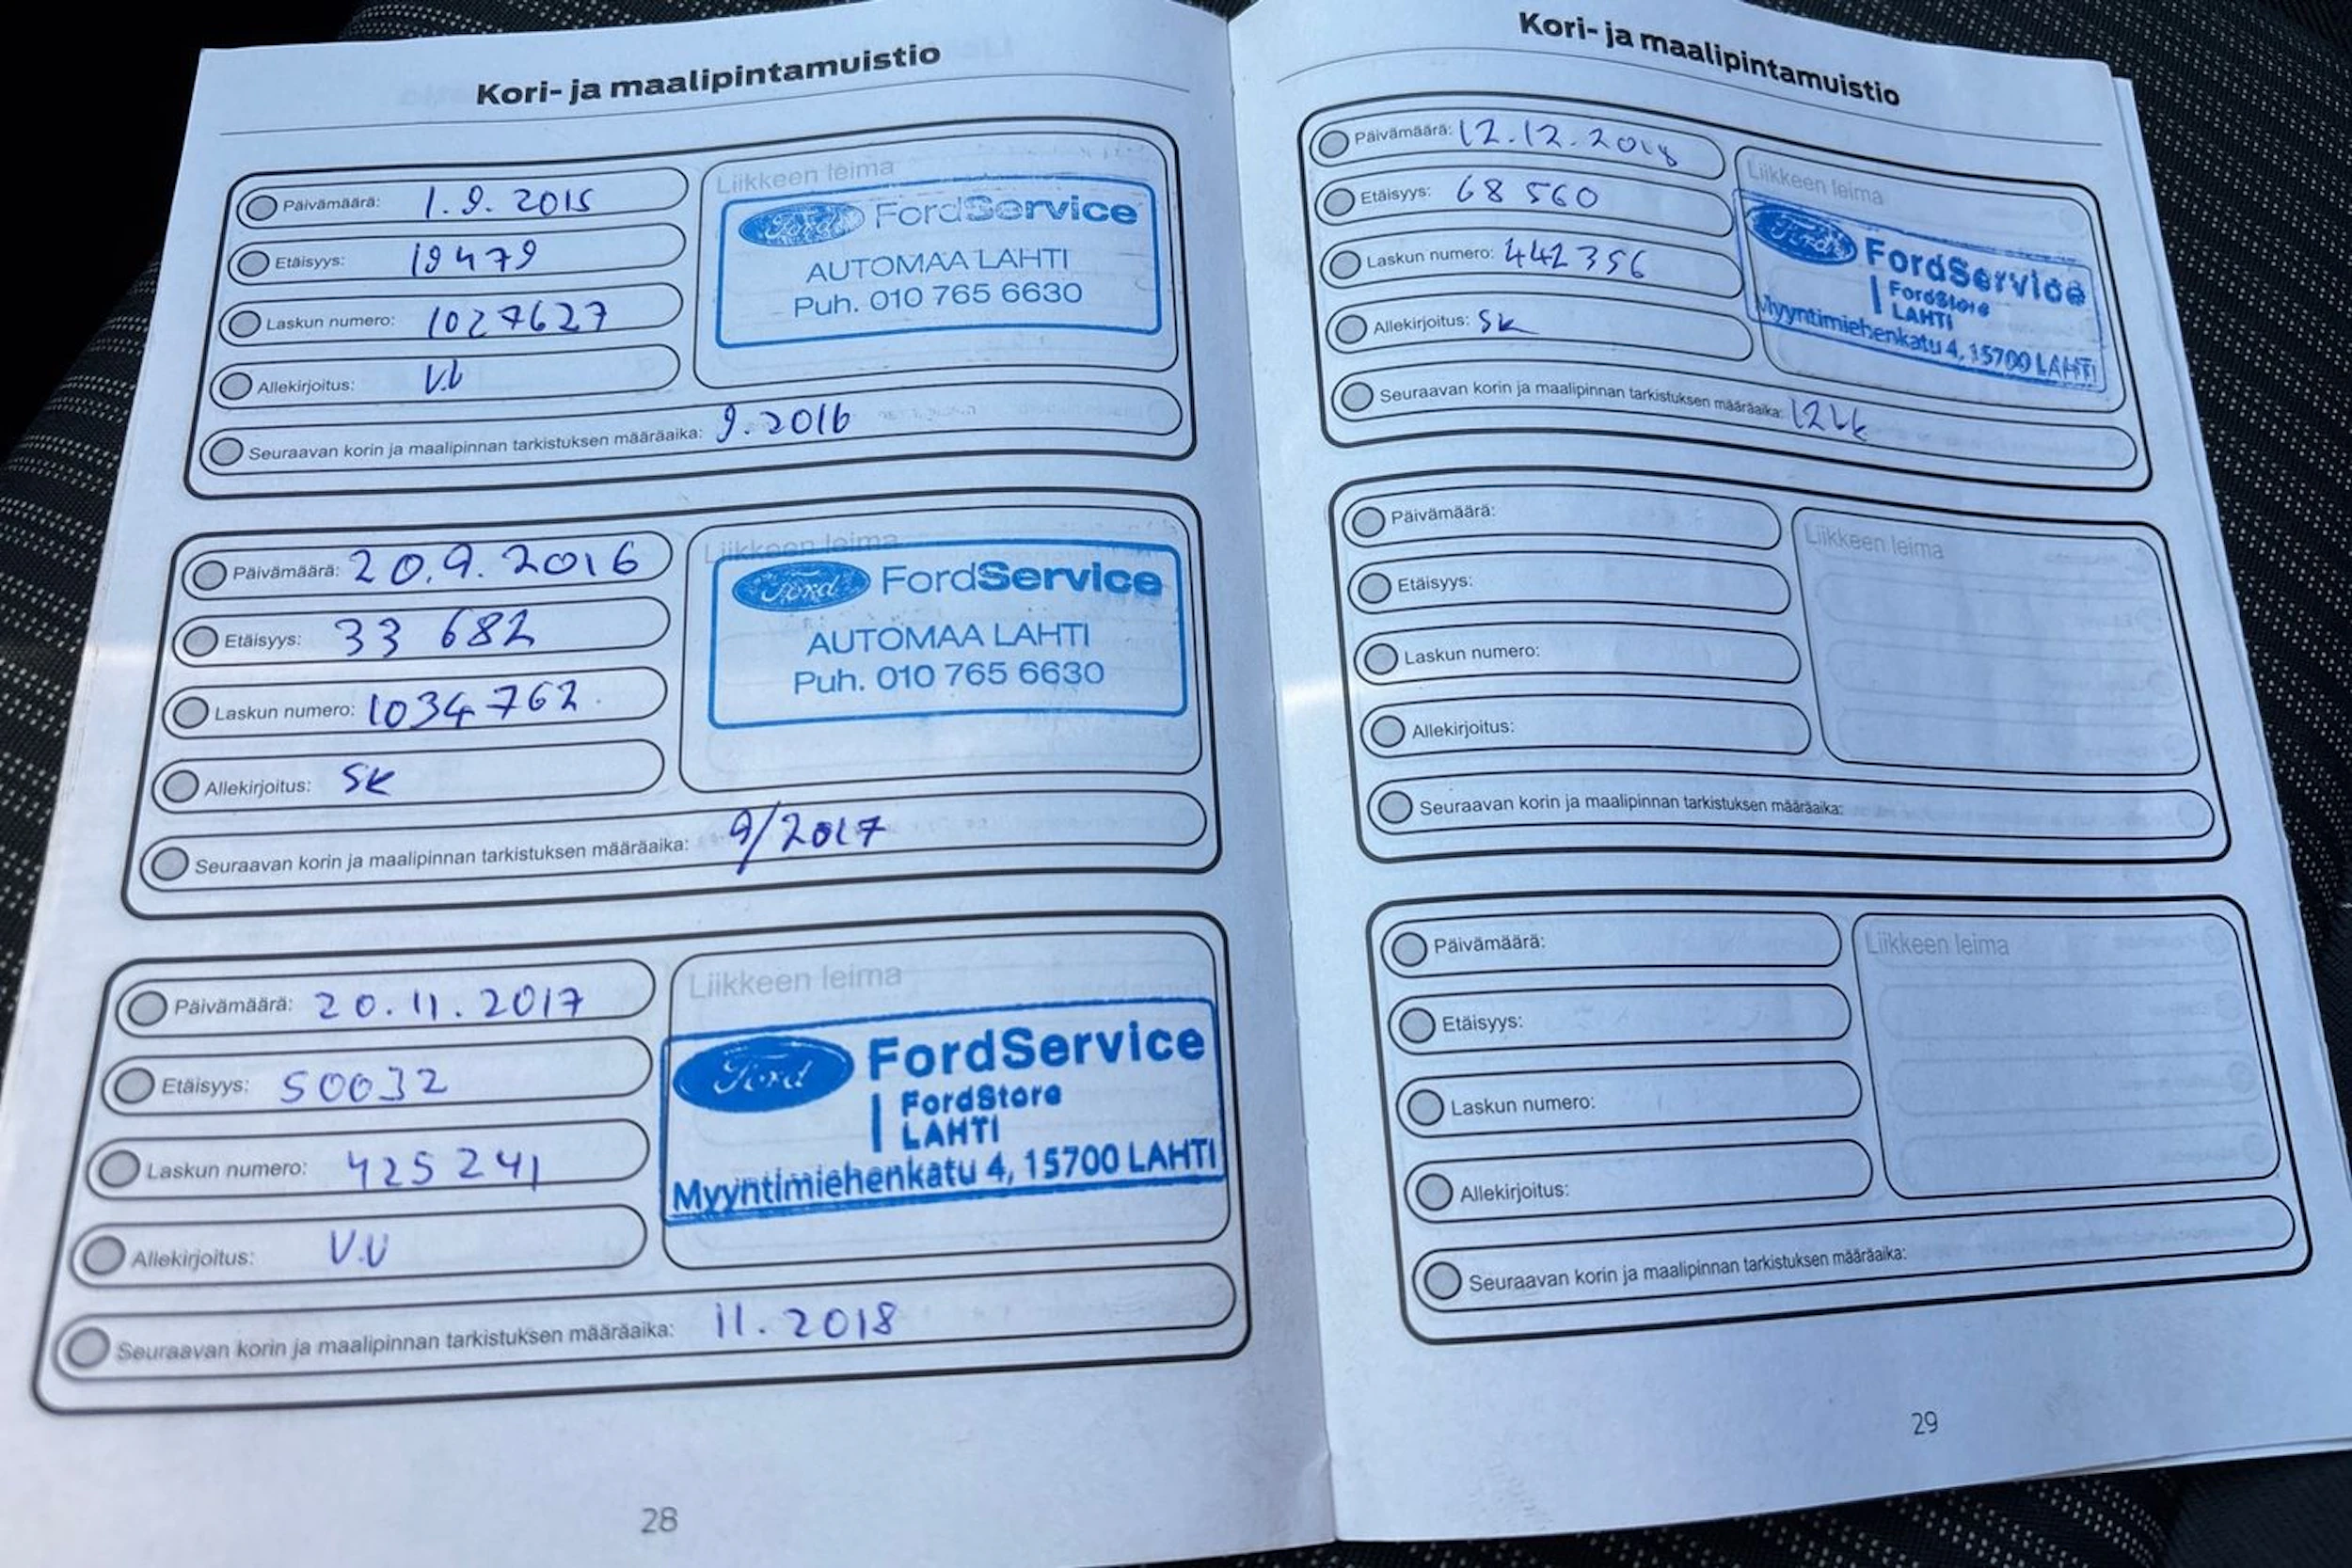 Kori- ja maalipintamuistio
Päivämäärä: 1.9.2015
Etäisyys: 19479
Laskun numero: 1027627
Allekirjoitus: V.U
Seuraavan korin ja maalipinnan tarkistuksen määräaika: 9.2016
Liikkeen leima
Ford FordService
AUTOMAA LAHTI
Puh. 010 765 6630
Päivämäärä: 20.9.2016
Etäisyys: 33 682
Laskun numero: 1034762
Allekirjoitus: SK
Seuraavan korin ja maalipinnan tarkistuksen määräaika: 9/2017
Liikkeen leima
Ford FordService
AUTOMAA LAHTI
Puh. 010 765 6630
Päivämäärä: 20.11.2017
Etäisyys: 50032
Laskun numero: 425241
Allekirjoitus: V.U
Seuraavan korin ja maalipinnan tarkistuksen määräaika: 11.2018
Liikkeen leima
Ford FordService
FordStore
LAHTI
Myyntimiehenkatu 4, 15700 LAHTI
28
Kori- ja maalipintamuistio
Päivämäärä: 12.12.2018
Etäisyys: 68 560
Laskun numero: 442356
Allekirjoitus: SK
Seuraavan korin ja maalipinnan tarkistuksen määräaika: 12kk
Liikkeen leima
Ford FordService
FordStore
LAHTI
Myyntimiehenkatu 4, 15700 LAHTI
Päivämäärä:
Etäisyys:
Laskun numero:
Allekirjoitus:
Seuraavan korin ja maalipinnan tarkistuksen määräaika:
Liikkeen leima
Päivämäärä:
Etäisyys:
Laskun numero:
Allekirjoitus:
Seuraavan korin ja maalipinnan tarkistuksen määräaika:
Liikkeen leima
29